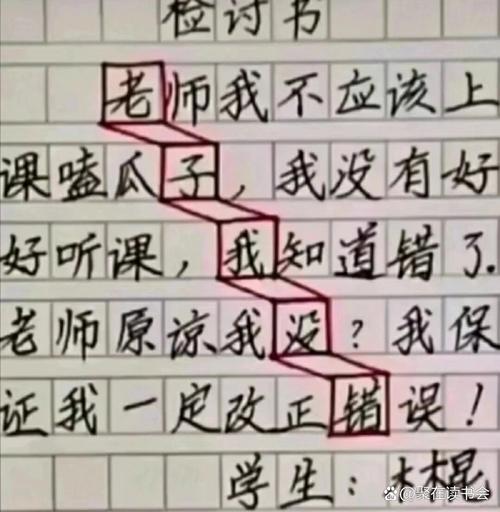 检讨书
老师我不应该上
课嗑瓜子，我没有好
好听课，我知道错了.
老师原谅我没？我保
证我一定改正错误！
学生：木棍
@聚在读书会